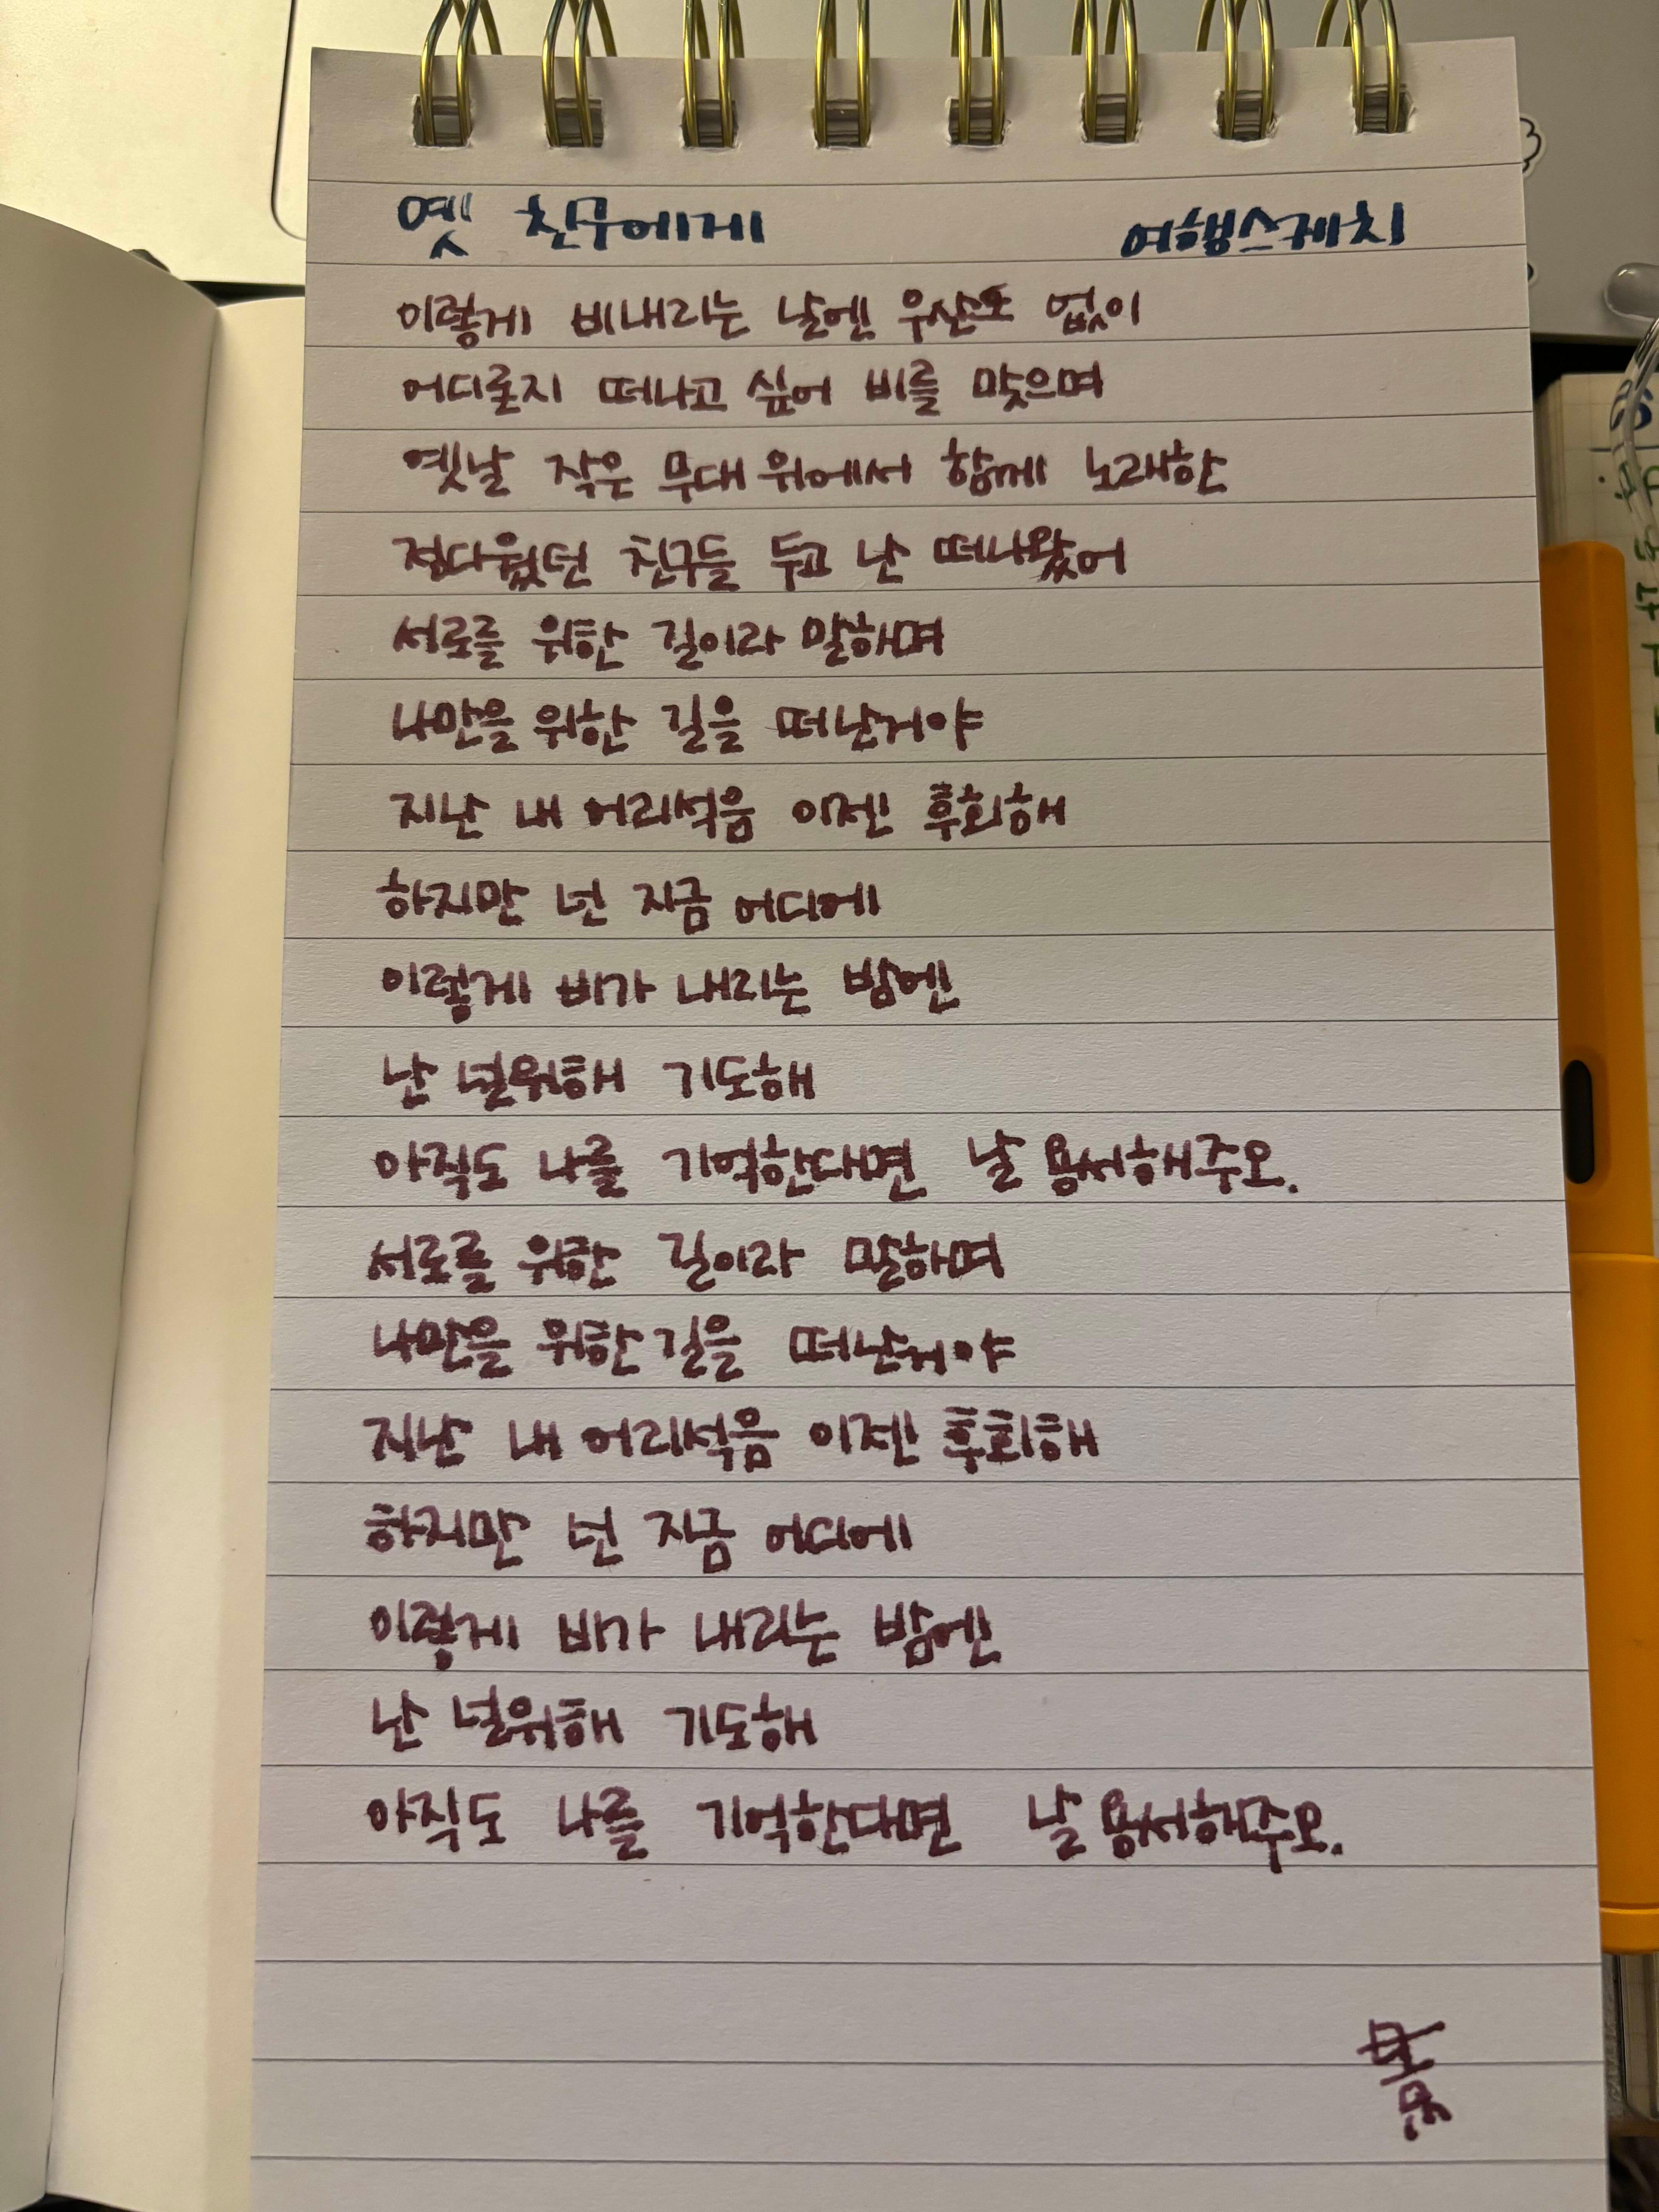 옛 친구에게 여행스케치
이렇게 비내리는 날엔 우산도 없이
어디론지 떠나고 싶어 비를 맞으며
옛날 작은 무대 위에서 함께 노래한
정다웠던 친구들 두고 난 떠나왔어
서로를 위한 길이라 말하며
나만을 위한 길을 떠난거야
지난 내 어리석음 이젠 후회해
하지만 넌 지금 어디에
이렇게 비가 내리는 밤엔
난 널위해 기도해
아직도 나를 기억한대면 날 용서해주오.
서로를 위한 길이라 말하며
나만을 위한 길을 떠난거야
지난 내 어리석음 이젠 후회해
하지만 넌 지금 어디에
이렇게 비가 내리는 밤엔
난 널위해 기도해
아직도 나를 기억한다면 날 용서해주오.